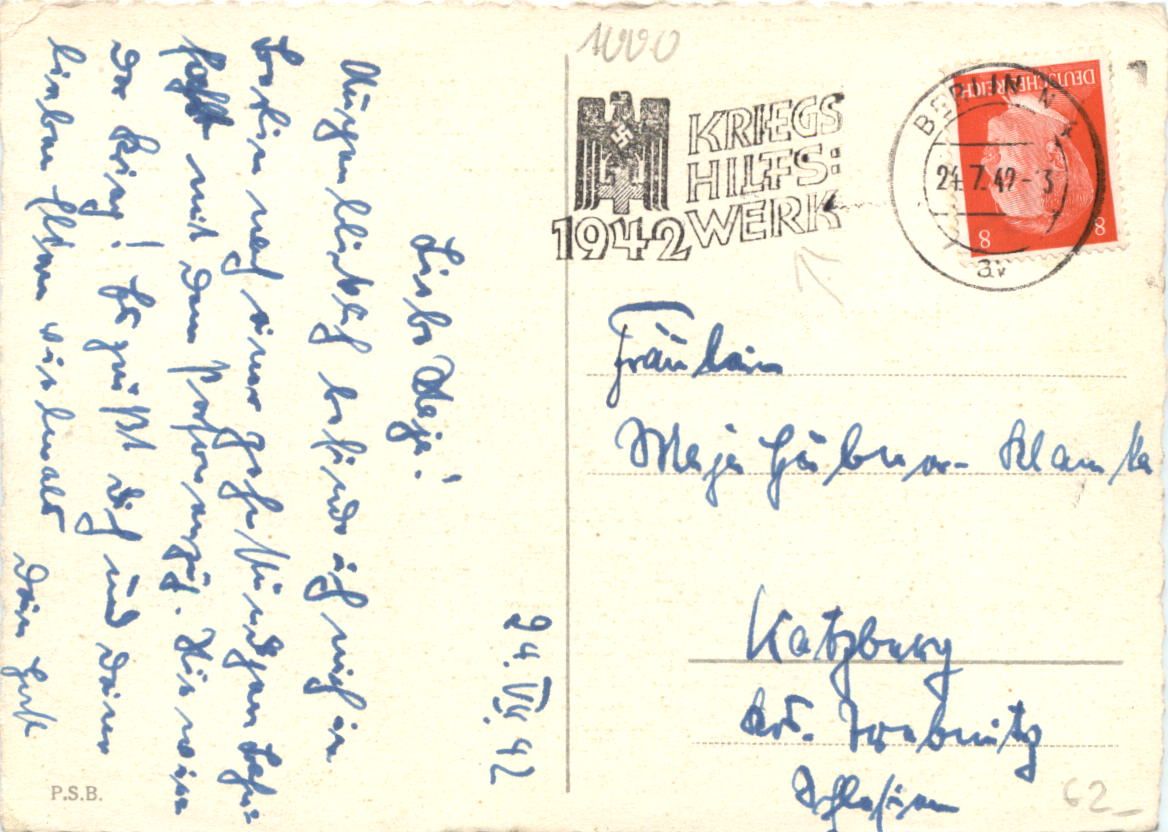 1000
KRIEGS
HILFS:
WERK
1942
BERLIN N 4
24.7.42-3
av
DEUTSCHES REICH
8 8
24. VII. 42
Liebe Maja!
Augenblicklich befinde ich mich in
Berlin nach einer
fahrt mit dem Personenzug.
Krieg! Es grüßt dich und deine
lieben Eltern vielmals Dein
P.S.B.
Fräulein
Maja Hübner-Klamka
Katzburg
Krs. Trebnitz
Schlesien
62_